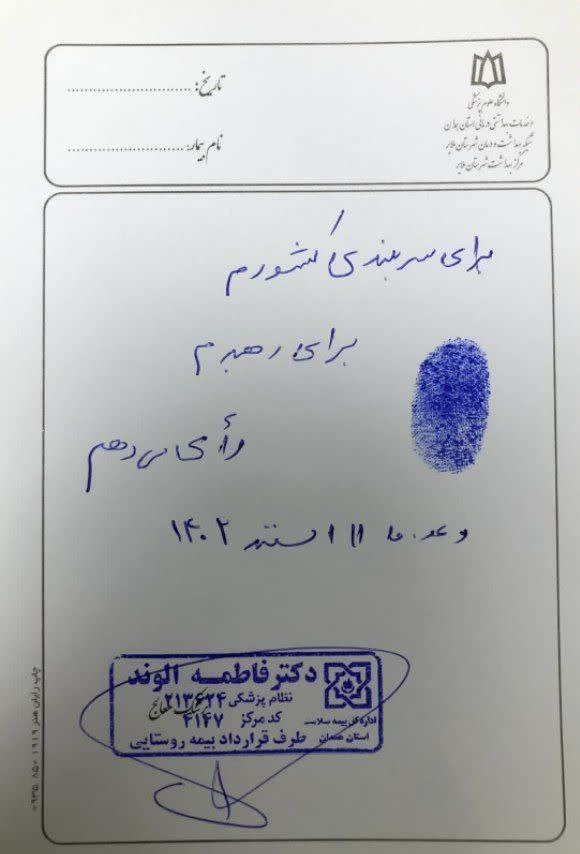 دانشگاه علوم پزشکی
و خدمات بهداشتی درمانی استان همدان
شبکه بهداشت و درمان شهرستان ملایر
مرکز بهداشت شهرستان ملایر
تاریخ: ........................
نام بیمار: ........................
برای سربلندی کشورم
برای رهبرم
رأی می دهم
وعده ما ۱۱ اسفند ۱۴۰۲
دکتر فاطمه الوند
نظام پزشکی ۲۱۳۶۲۴
پزشک معالج
کد مرکز ۴۱۴۷
طرف قرارداد بیمه روستایی
اداره کل بیمه سلامت
استان همدان
چاپ رایان هنر